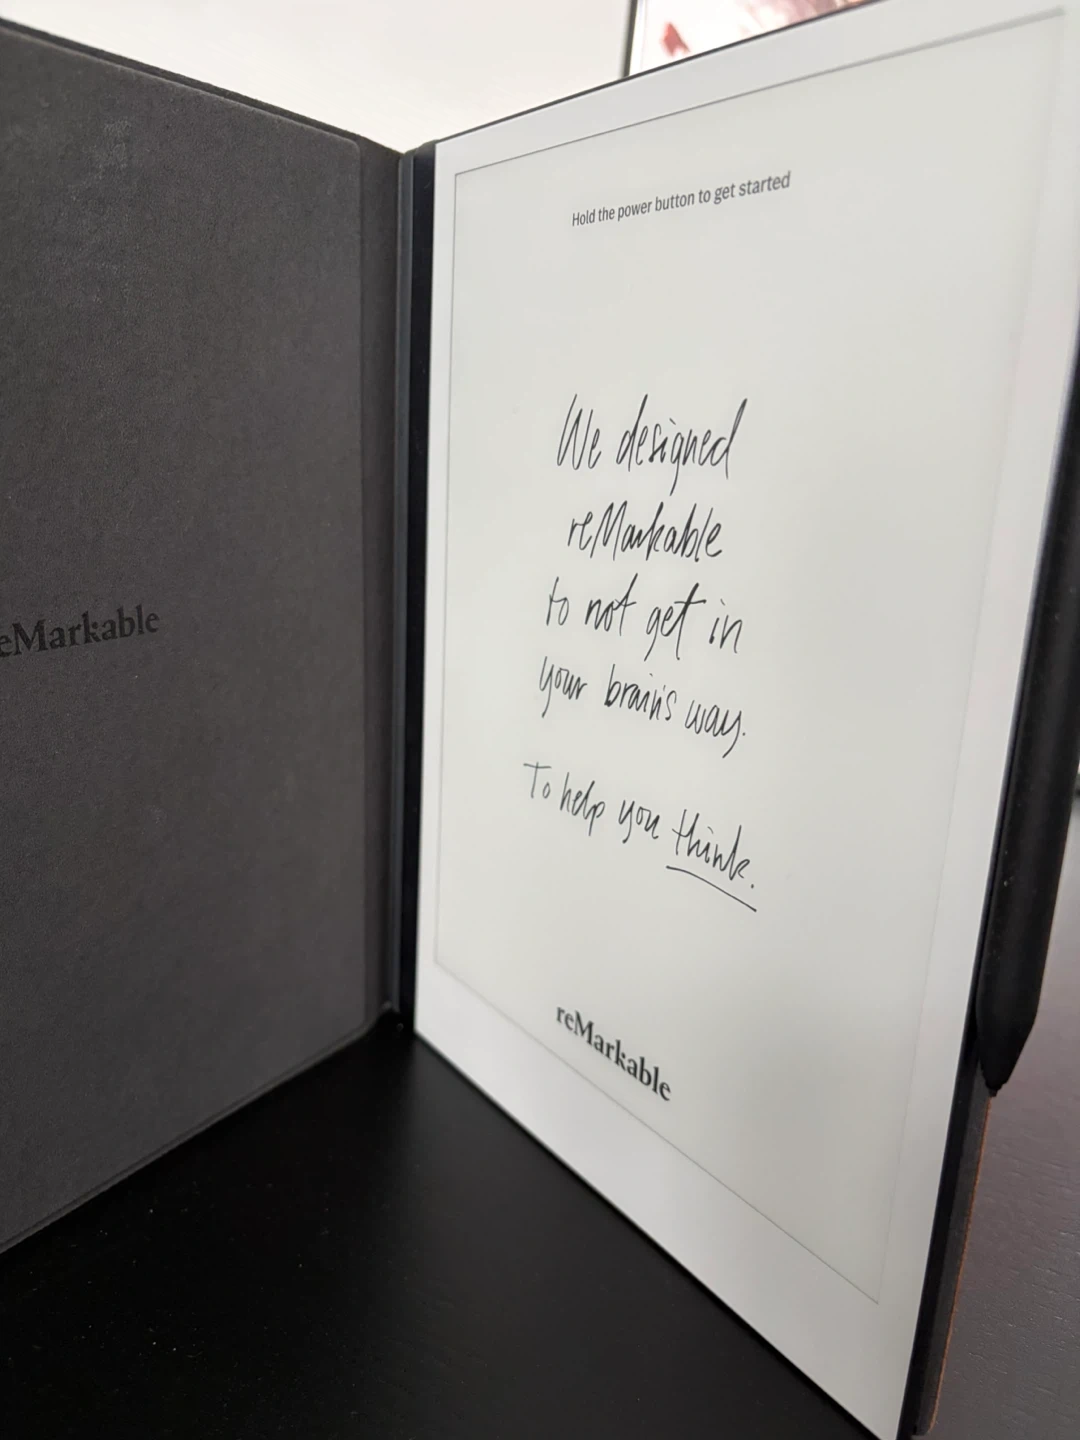 Hold the power button to get started
We designed
reMarkable
to not get in
your brain's way.
To help you think.
reMarkable
eMarkable